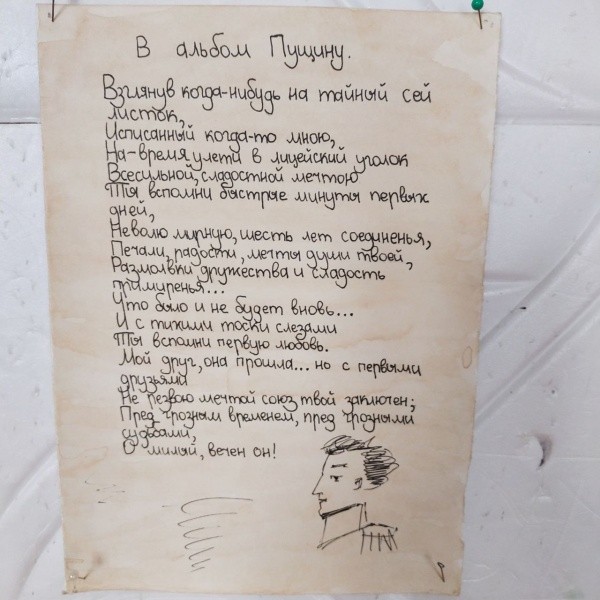 В альбом Пущину.
Взглянув когда-нибудь на тайный сей
листок,
Исписанный когда-то мною,
На-время улети в лицейский уголок
Всесильной, сладостной мечтою
Ты вспомни быстрые минуты первых
дней,
Неволю мирную, шесть лет соединенья,
Печали, радости, мечты души твоей,
Размолвки дружества и сладость
примиренья...
Что было и не будет вновь...
И с тихими тоски слезами
Ты вспомни первую любовь.
Мой друг, она прошла... но с первыми
друзьями
Не резвою мечтой союз твой заключен;
Пред грозным временем, пред грозными
судьбами,
О милый, вечен он!